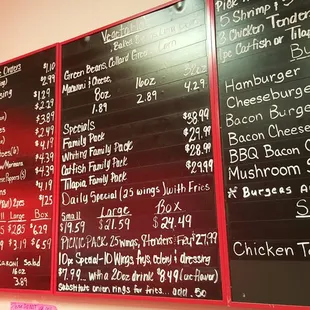 Orders
$1.10
$.29
$2.29
$2.39
$3.29
$4.39
$4.39
$4.39
$1.25
Small L X 6
5 $2.85 $6.29
9 $3.19 $6.59
Salad
16oz
3.89
Vegetables
Baked
Green Beans, Collard Greens, Corn
Macaroni & Cheese,
8oz 16oz
1.89 2.89 4.29
Specials
Family Pack $8.99
Whiting Family Pack $29.99
Catfish Family Pack $28.99
Tilapia Family Pack $29.99
Daily Special (25 wings) with Fries
Small Large Box
$19.59 $21.59 $24.49
PICNIC PACK 25 wings, 4 tenders, Fry $27.99
10pc Special - 10 Wings, frys, celery & dressing
$7.99... with a 20oz drink $8.49 (ac flavor)
Substitute onion rings for fries... add .50
Pick
5 Shrimp &
2 Chicken Tenders
1pc Catfish or Tilapia
Hamburger
Cheeseburger
Bacon Burger
Bacon Cheese
BBQ Bacon C
Mushroom S
* Burgers A
Chicken Ten